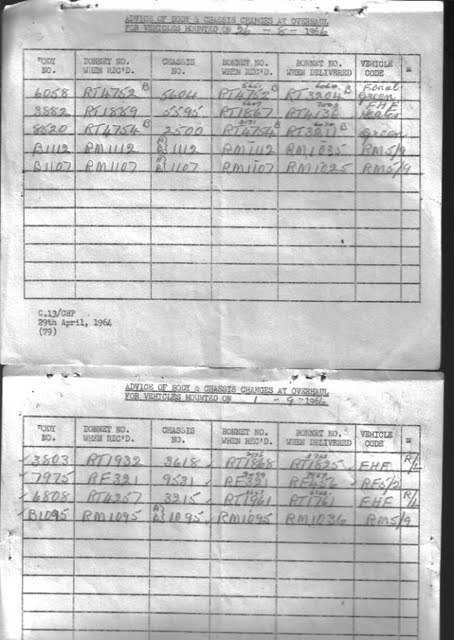 ADVICE OF BODY & CHASSIS CHANGES AT OVERHAUL
FOR VEHICLES MOUNTED ON 26 - 8 - 1964
BODY NO. BONNET NO. WHEN REC'D. CHASSIS NO. BONNET NO. WHEN REC'D. BONNET NO. WHEN DELIVERED VEHICLE CODE
6058 RT4752 B 5604 RT4752 B RT3204 B Green
3882 RT1889 5595 RT1867 RT4136 FHF
8820 RT4754 B 2500 RT4754 B RT3211 B Green
B1112 RM1112 1112 RM1112 RM1035 RM5/9
B1107 RM1107 1107 RM1107 RM1025 RM5/9
C.13/CHP
29th April, 1964
(79)
ADVICE OF BODY & CHASSIS CHANGES AT OVERHAUL
FOR VEHICLES MOUNTED ON 1 - 9 - 1964
BODY NO. BONNET NO. WHEN REC'D. CHASSIS NO. BONNET NO. WHEN REC'D. BONNET NO. WHEN DELIVERED VEHICLE CODE
3803 RT1932 3618 RT1868 RT1825 FHF
7975 RF321 9521 RF321 RF5/2
6808 RT4257 3215 RT1961 RT1761 FHF
B1095 RM1095 1095 RM1095 RM1036 RM5/9